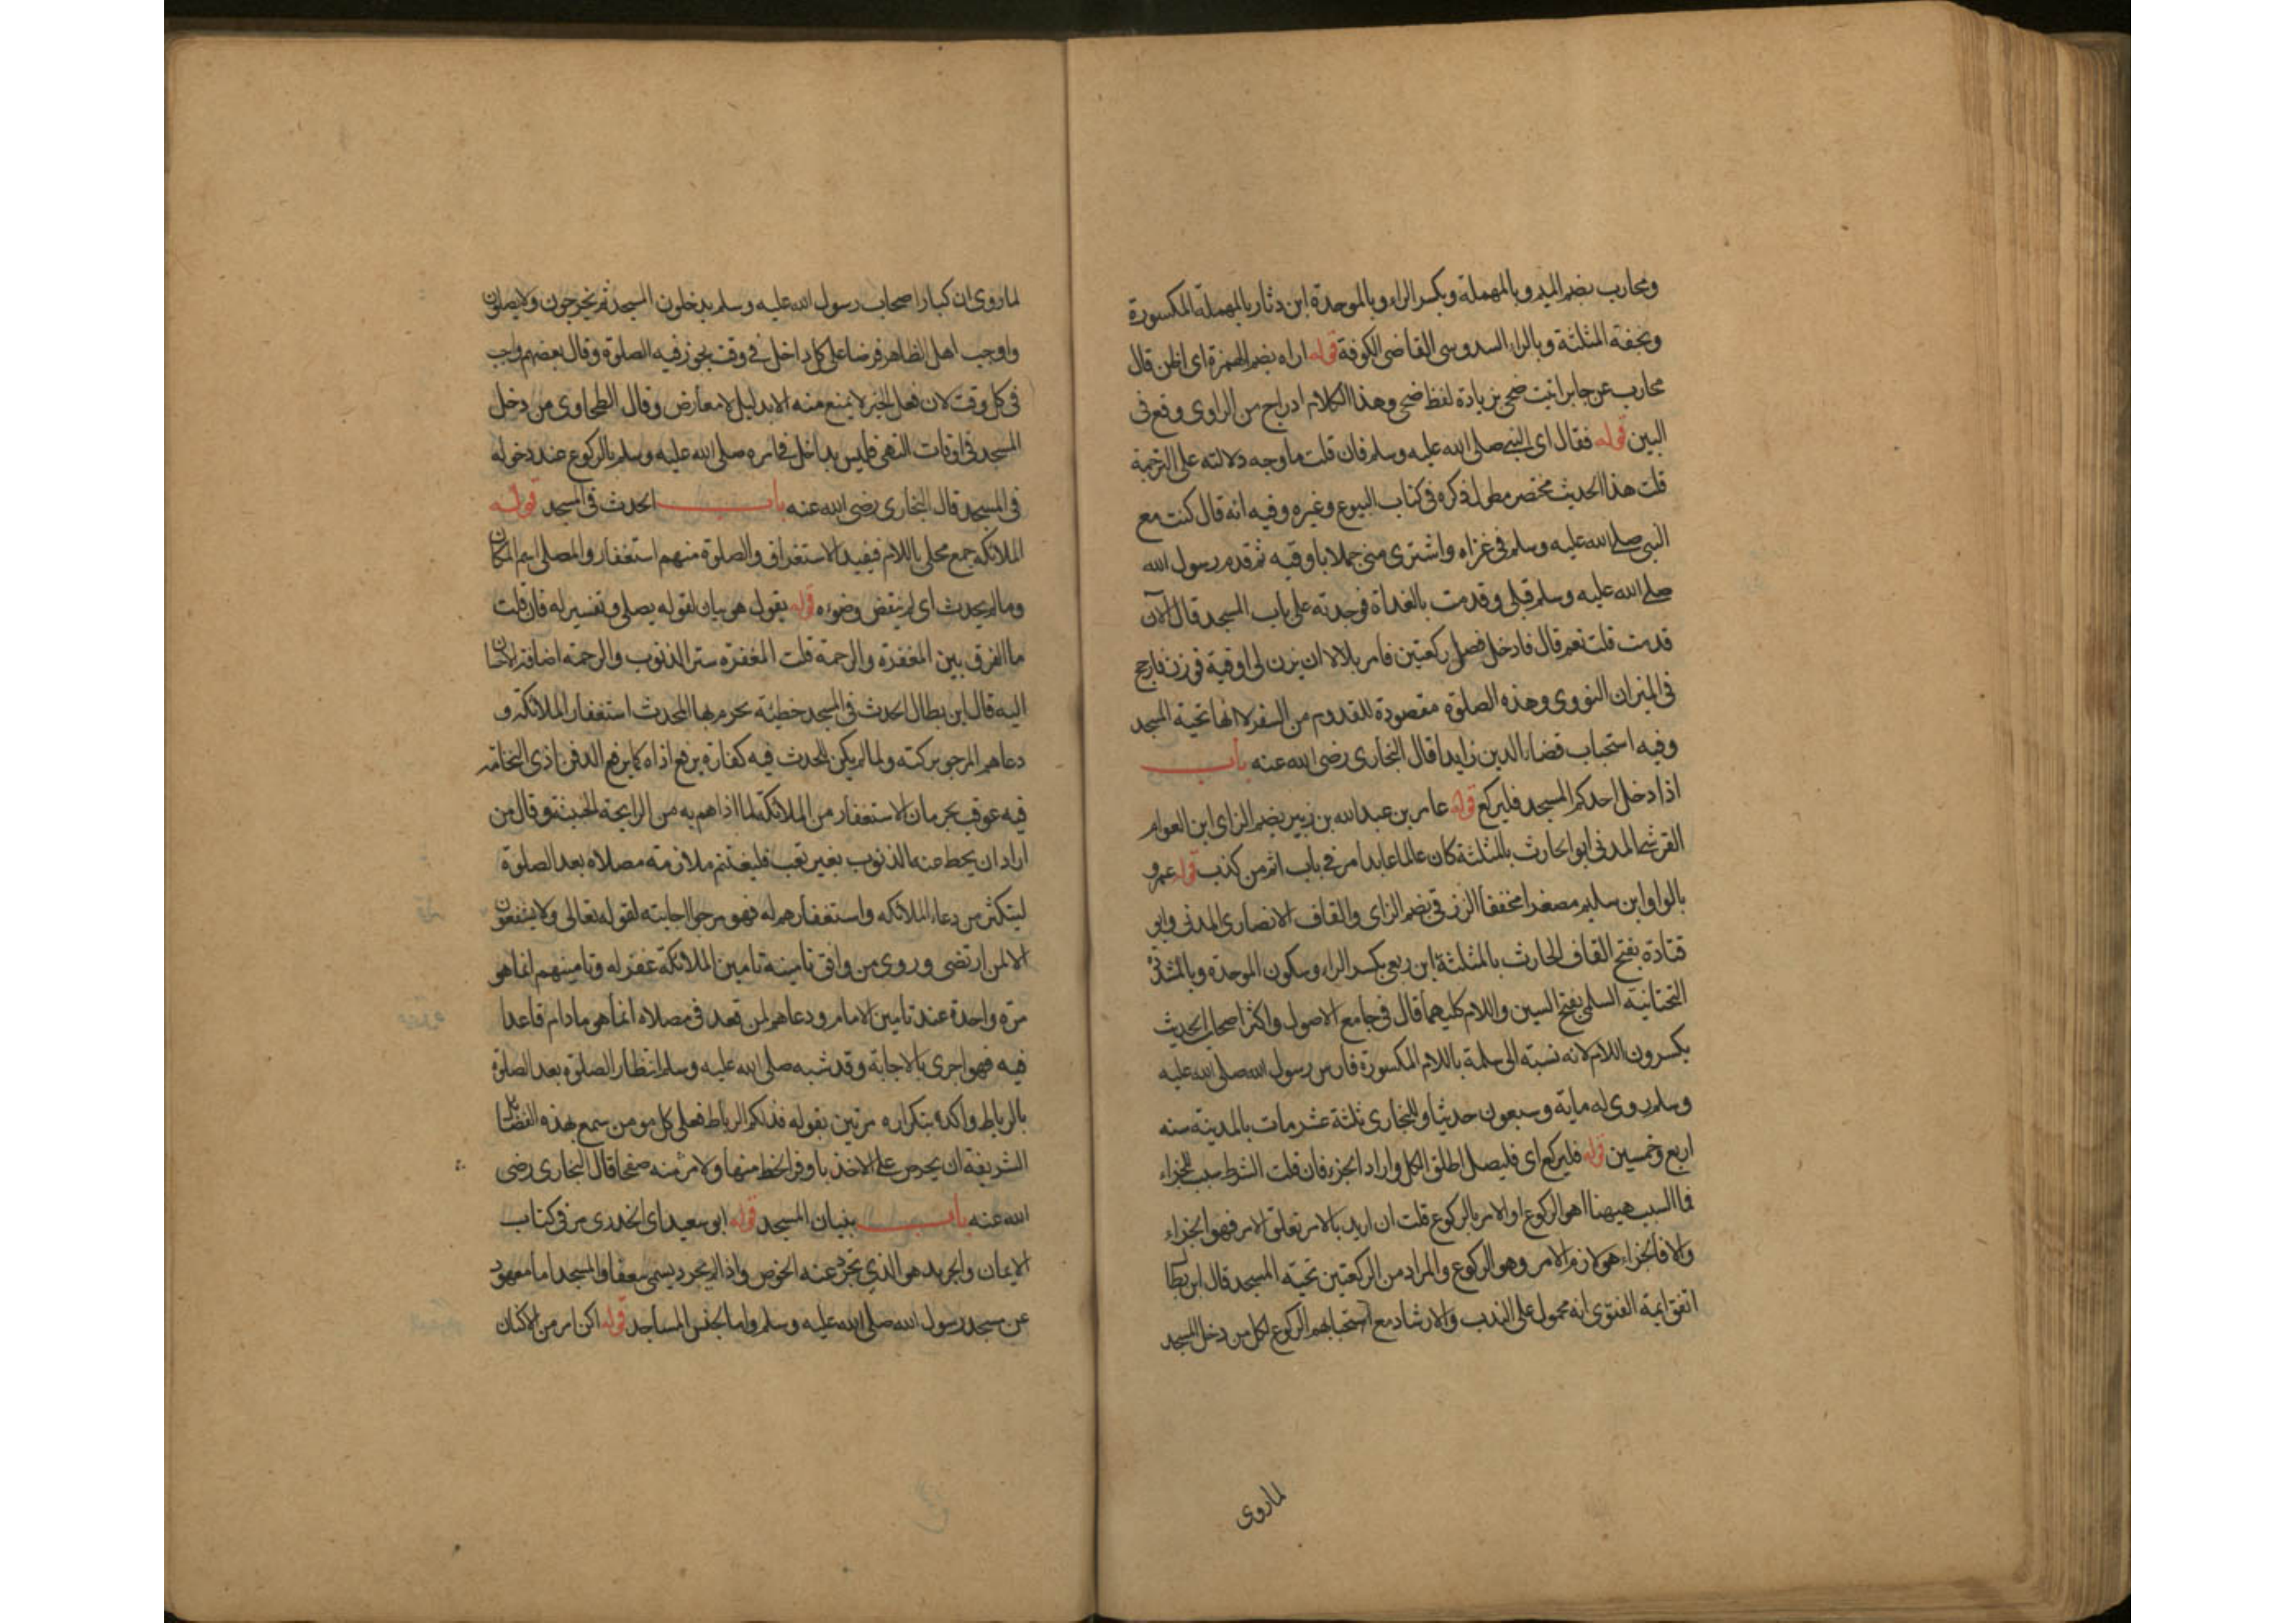 ومحارب بضم الميم وبالمهملة وبكسر الراء وبالموحدة ابن دثار بالمهملة المكسورة
وبخفة المثلثة وبالراء السدوسى القاضى الكوفة قوله اراه بضم الهمزة اى اظن قال
محارب عن جابر اتيت ضحى بزيادة لفظ ضحى وهذا الكلام ادراج من الراوى وقع فى
البين قوله فقال اى النبى صلى الله عليه وسلم فان قلت ما وجه دلالته على الترجمة
قلت هذا الحديث مختصر مطول ذكره فى كتاب البيوع وغيره وفيه انه قال كنت مع
النبى صلى الله عليه وسلم فى غزاه واشترى منى جملا باوقيه ثم قدم رسول الله
صلى الله عليه وسلم قبلى وقدمت بالغداة فوجدته على باب المسجد قال الآن
قدمت قلت نعم قال فادخل فصل ركعتين فامر بلالا ان يزن لى اوقية فوزن فارجح
فى الميزان النووى وهذه الصلوة مقصودة للقدوم من السفر لا انها تحية المسجد
وفيه استحباب قضاء الدين زايدا قال البخارى رضى الله عنه باب
اذا دخل احدكم المسجد فليركع قوله عامر بن عبد الله بن زبير بضم الزاى ابن العوام
القرشى المدنى ابو الحارث بالمثلثة كان عالما عابدا مر فى باب اثم من كذب قوله عمرو
بالواو ابن سليم مصغرا مخففا الزرقى بضم الزاى والقاف الانصارى المدنى وابو
قتادة بفتح القاف الحارث بالمثلثة ابن ربعى بكسر الراء وسكون الموحدة وبالمشدة
التحتانية السلمى بفتح السين واللام كليهما قال فى جامع الاصول واكثر اصحاب الحديث
يكسرون اللام لانه نسبته الى سلمة باللام المكسورة فارس رسول الله صلى الله عليه
وسلم روى له ماية وسبعون حديثا وللبخارى ثلثة عشر مات بالمدينة سنه
اربع وخمسين قوله فليركع اى فليصل اطلق الكل واراد الجزء فان قلت الشرط سبب للجزاء
فما السبب هيهنا اهو الركوع او الامر بالركوع قلت ان اريد بالامر تعلق الامر فهو الجزاء
والا فالجزاء هو لازم الامر وهو الركوع والمراد من الركعتين تحية المسجد قال ابن بطال
اتفق ايمة الفتوى انه محمول على الندب والارشاد مع استحبابهم الركوع لكل من دخل المسجد
لما روى
لما روى ان كبار اصحاب رسول الله عليه وسلم يدخلون المسجد ثم يخرجون ولا يصلون
واوجب اهل الظاهر فرضا على كل داخل فى وقت يجوز فيه الصلوة وقال بعضهم واجب
فى كل وقت لان فعل الخير لا يمنع منه الا بدليل لا معارض وقال الطحاوى من دخل
المسجد فى اوقات النهى فليس بداخل فى امره صلى الله عليه وسلم بالركوع عند دخوله
فى المسجد قال البخارى رضى الله عنه باب الحدث فى المسجد قوله
الملائكة جمع محلى باللام فيفيد الاستغراق والصلوة منهم استغفار والمصلى اسم المكان
وما لم يحدث اى لم ينقض وضوءه قوله يقول هو بيان لقوله يصلى وتفسير له فان قلت
ما الفرق بين المغفرة والرحمة قلت المغفرة ستر الذنوب والرحمة اضافة الاحسان
اليه قال ابن بطال الحدث فى المسجد خطيئة يحرم بها المحدث استغفار الملائكة و
دعاهم المرجو بركته ولما لم يكن للحدث فيه كفارة يرفع اذاه كما يرفع الدفن اذى النخامه
فيه عوقب بحرمان الاستغفار من الملائكة لما اذاهم به من الرايحة الخبيثة وقال من
اراد ان يحط عنه الذنوب بغير تعب فليغتنم ملازمة مصلاه بعد الصلوة
ليتكثر من دعاء الملائكه واستغفارهم له فهو مرجوا اجابته لقوله تعالى ولا يشفعون
الا لمن ارتضى وروى من وافق تامينه تامين الملائكة غفر له وتامينهم انما هو
مرة واحدة عند تامين الامام ودعاهم لمن قعد فى مصلاه انما هو مادام قاعدا
فيه فهو احرى بالاجابة وقد شبه صلى الله عليه وسلم انتظار الصلوة بعد الصلوة
بالرباط واكده بتكراره مرتين بقوله فذلكم الرباط فعلى كل مومن سمع بهذه الفضائل
الشريفة ان يحرص على الاخذ باوفر الحظ منها ولا منه صفحا قال البخارى رضى
الله عنه باب بنيان المسجد قوله ابو سعيد اى الخدرى مر فى كتاب
الايمان والجريد هو الذى تجرد عنه الخوص واذا لم يجرد يسمى سعفا والمسجد اما معهود
عن مسجد رسول الله صلى الله عليه وسلم واما لجنس المساجد قوله اكن امر من الاكنان